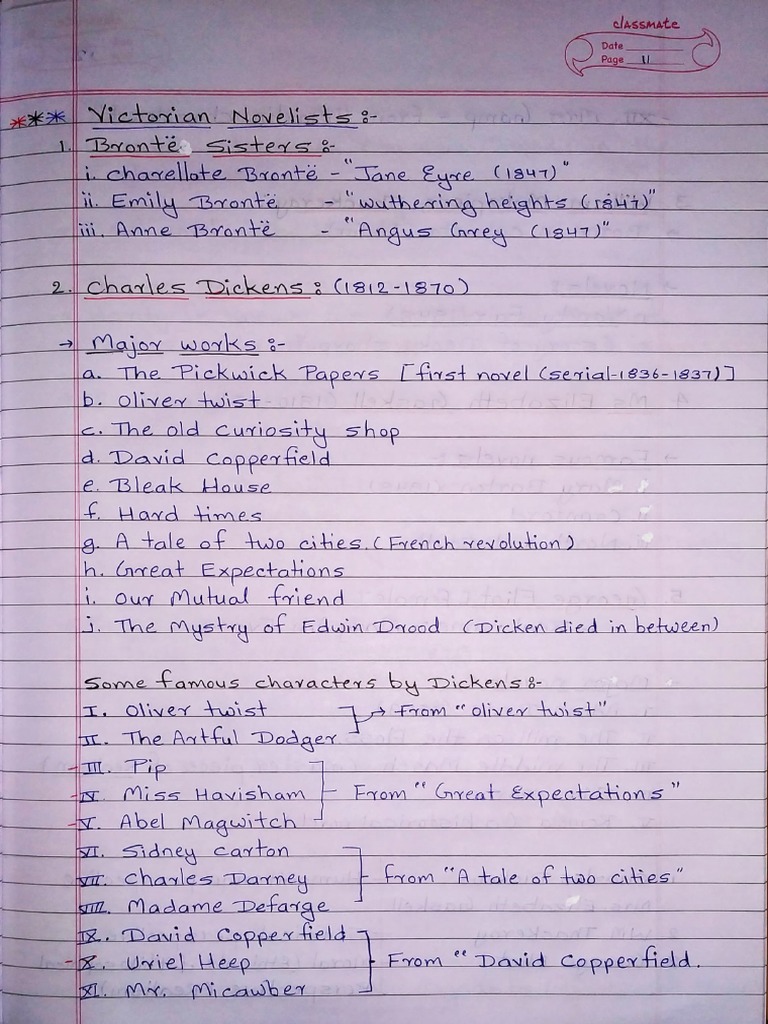 classmate
Date
Page 11
*** Victorian Novelists :-
1. Brontë Sisters :-
i. Charellote Brontë - "Jane Eyre (1847)"
ii. Emily Brontë - "wuthering heights (1847)"
iii. Anne Brontë - "Angus Grey (1847)"
2. Charles Dickens : (1812-1870)
→ Major works :-
a. The Pickwick Papers [first novel (serial-1836-1837)]
b. Oliver twist
c. The old curiosity shop
d. David Copperfield
e. Bleak House
f. Hard times
g. A tale of two cities. (French revolution)
h. Great Expectations
i. our Mutual friend
j. The Mystry of Edwin Drood (Dicken died in between)
Some famous characters by Dickens :-
I. Oliver twist
II. The Artful Dodger → From "oliver twist"
III. Pip
IV. Miss Havisham - From "Great Expectations"
V. Abel Magwitch
VI. Sidney Carton
VII. Charles Darney - from "A tale of two cities"
VIII. Madame Defarge
IX. David Copperfield
X. Uriel Heep - From " David Copperfield.
XI. Mr. Micawber